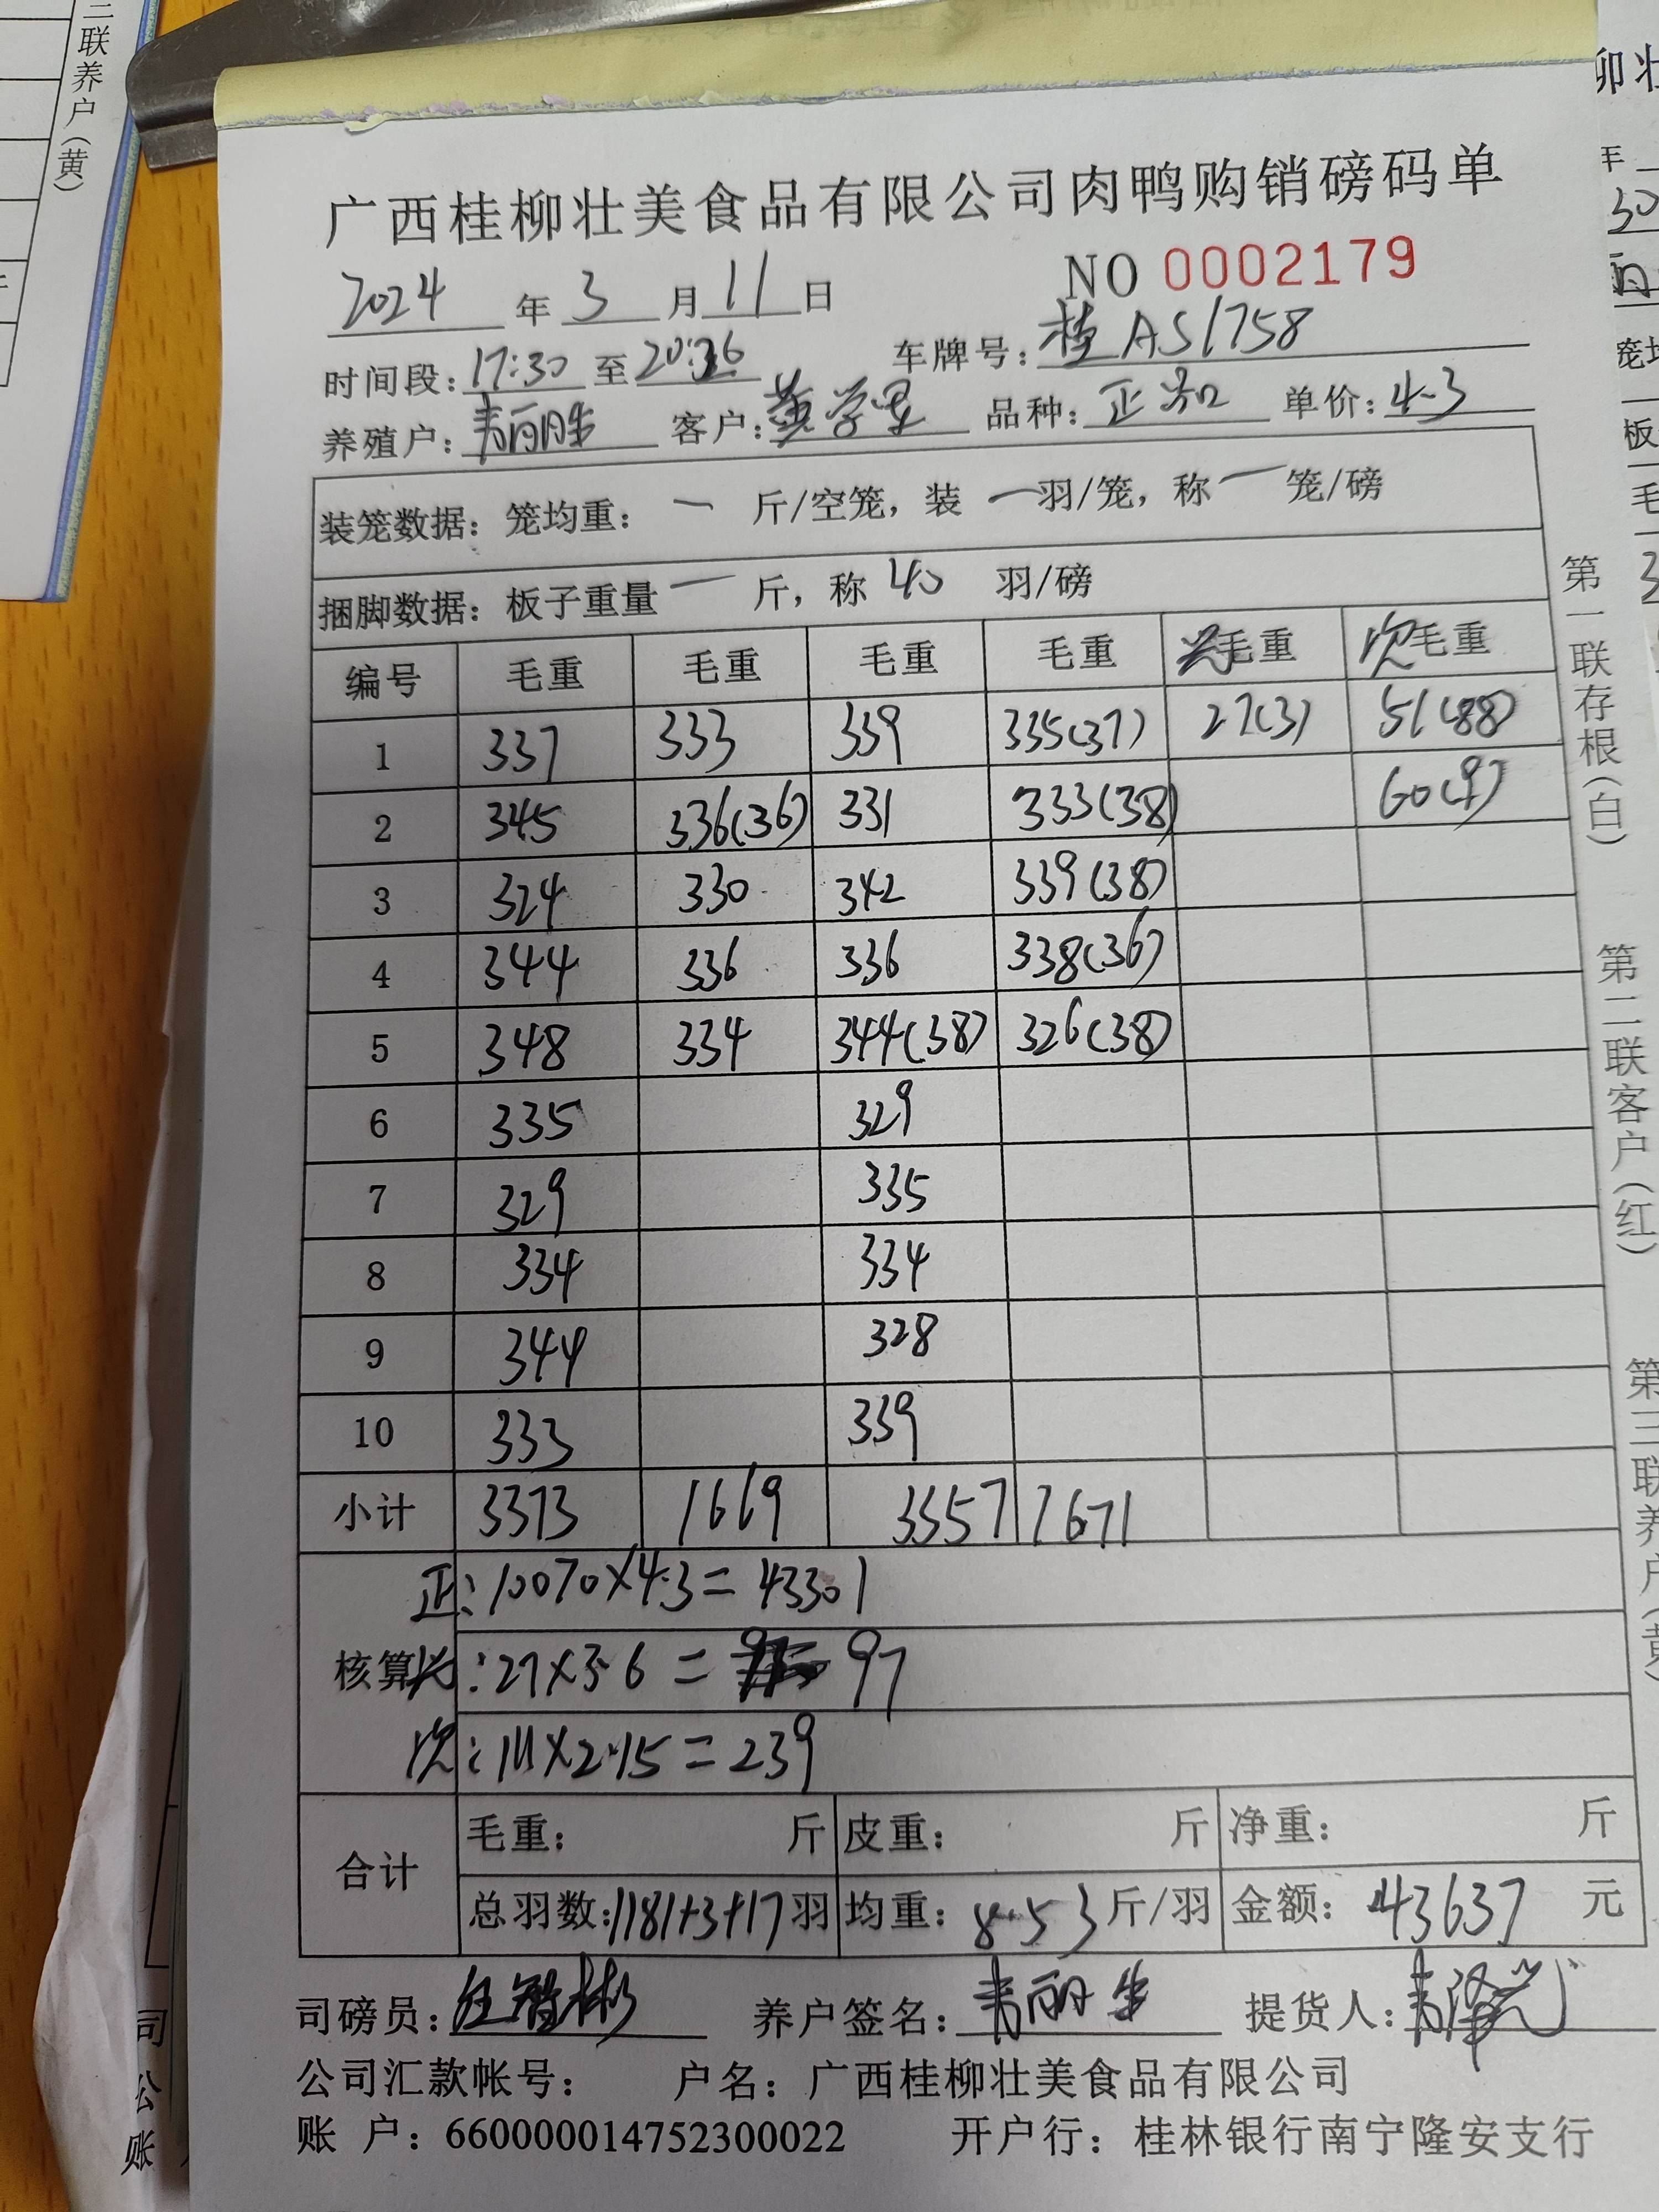 二联养户(黄)
广西桂柳壮美食品有限公司肉鸭购销磅码单
NO 0002179
2024 年 3 月 11 日
时间段: 17:30 至 20:36 车牌号: 桂AS1758
养殖户: 韦丽胜 客户: 黄学 品种: 正 单价: 4.3
装笼数据: 笼均重: 一 斤/空笼, 装 一 羽/笼, 称 一 笼/磅
捆脚数据: 板子重量 一 斤, 称 40 羽/磅
编号 毛重 毛重 毛重 毛重 毛重 次毛重
1 337 333 339 335(37) 27(3) 51(88)
2 345 336(36) 331 333(38) 60(9)
3 324 330 342 339(38)
4 344 336 336 338(36)
5 348 334 344(38) 326(38)
6 335 329
7 329 335
8 334 334
9 344 328
10 333 339
小计 3373 1669 3357 1671
正: 10070×4.3=43301
核算 : 27×3.6= 97
次: 111×2.15=239
合计 毛重: 斤 皮重: 斤 净重: 斤
总羽数: 1181+3+17 羽 均重: 8.53 斤/羽 金额: 43637 元
司磅员: 养户签名: 韦丽生 提货人: 韦泽光
公司汇款帐号: 户名: 广西桂柳壮美食品有限公司
账 户: 660000014752300022 开户行: 桂林银行南宁隆安支行
第一联存根(白)
第二联客户(红)
第三联养户(黄)